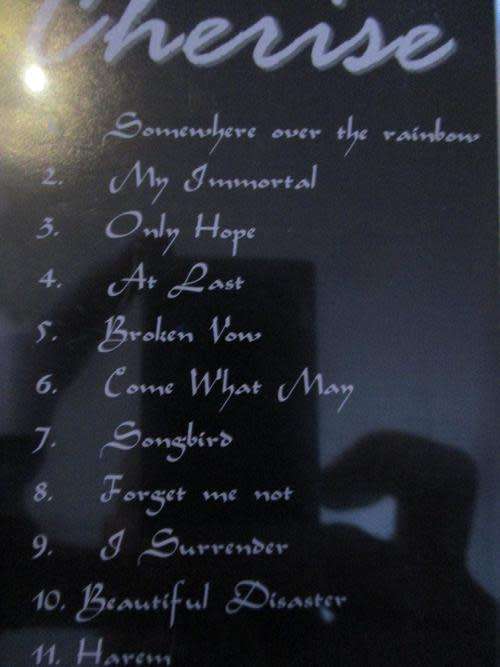 Cherise
1. Somewhere over the rainbow
2. My Immortal
3. Only Hope
4. At Last
5. Broken Vow
6. Come What May
7. Songbird
8. Forget me not
9. I Surrender
10. Beautiful Disaster
11. Harem